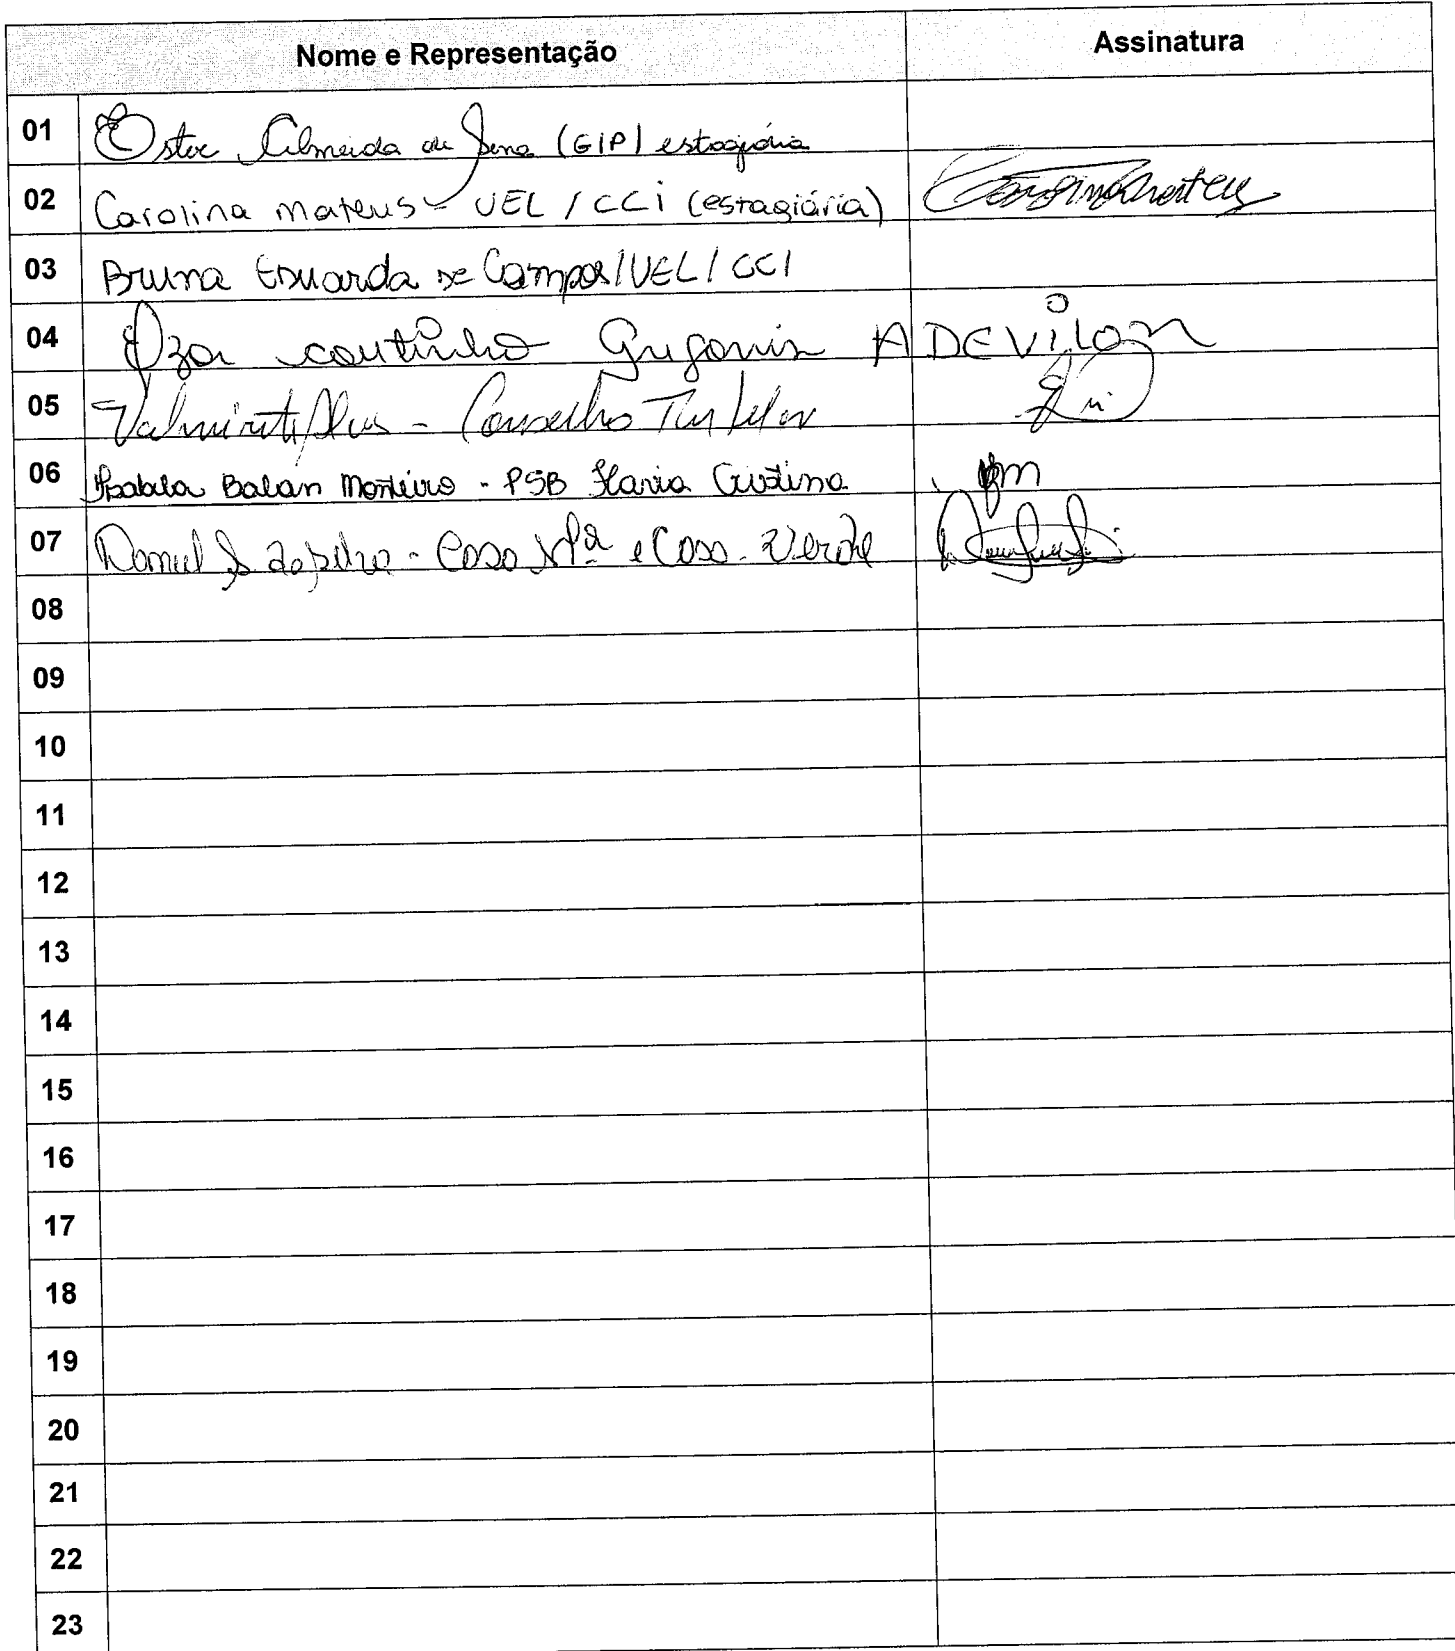 Nome e Representação Assinatura
01 Ester Almeida de Sena (GIP) estagiária
02 Carolina Mateus - UEL / CCI (estagiária)
03 Bruna Eduarda de Campos/UEL/CCI
04 coutinho ADEVILON
05 Alves - Conselho Tutelar
06 Isabela Balan Monteiro - PSB Flavia Cristina
07 - Casa Mª e Casa Verde
08
09
10
11
12
13
14
15
16
17
18
19
20
21
22
23